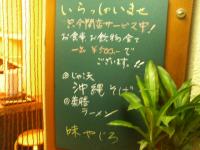 いらっしゃいませ
只今開店サービス中!
お食事お飲物全て
一品 ¥500-で
ございます!!
◎じゃ天
沖縄そば
◎薬膳
ラーメン
味やじろ